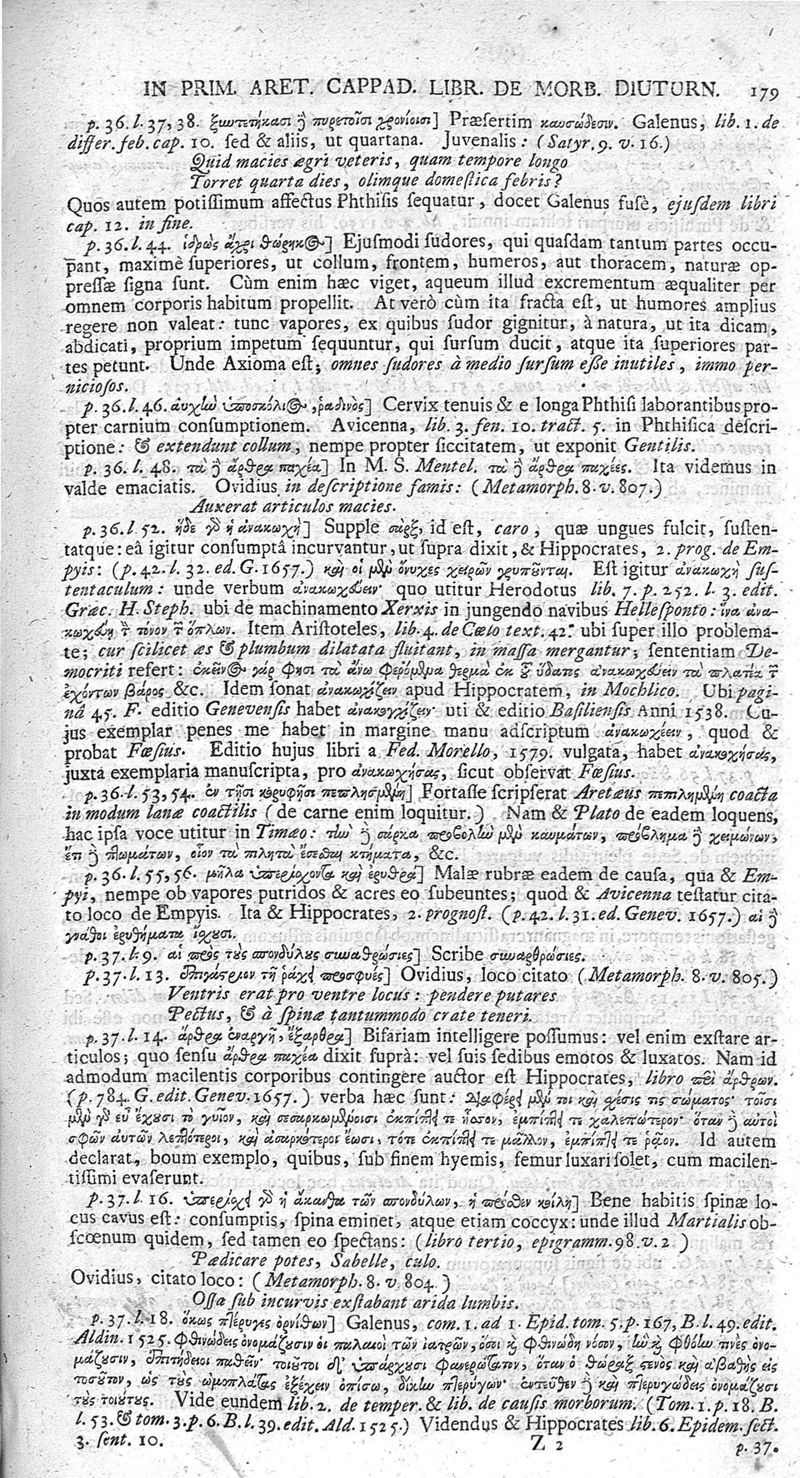 IN PRIM. ARET. CAPPAD. LIBR. DE MORB. DIUTURN. 179
p. 36. l. 37, 38. ξυντετήκασι ἢ πυρετοῖσι χρονίοισι] Præsertim καυσώδεσιν. Galenus, lib. 1. de
differ. feb. cap. 10. sed & aliis, ut quartana. Juvenalis: (Satyr. 9. v. 16.)
Quid macies ægri veteris, quam tempore longo
Torret quarta dies, olimque domestica febris?
Quos autem potissimum affectus Phthisis sequatur, docet Galenus fusè, ejusdem libri
cap. 12. in fine.
p. 36. l. 44. ἱδρὼς ἄχρι θώρηκος] Ejusmodi sudores, qui quasdam tantum partes occu-
pant, maximè superiores, ut collum, frontem, humeros, aut thoracem, naturæ op-
pressæ signa sunt. Cùm enim hæc viget, aqueum illud excrementum æqualiter per
omnem corporis habitum propellit. At verò cùm ita fracta est, ut humores amplius
regere non valeat: tunc vapores, ex quibus sudor gignitur, à natura, ut ita dicam,
abdicati, proprium impetum sequuntur, qui sursum ducit, atque ita superiores par-
tes petunt. Unde Axioma est; omnes sudores à medio sursum esse inutiles, immo per-
niciosos.
p. 36. l. 46. αὐχὴν ὑποσκόλιος, ῥαδινὸς] Cervix tenuis & e longa Phthisi laborantibus pro-
pter carnium consumptionem. Avicenna, lib. 3. fen. 10. tract. 5. in Phthisica descri-
ptione: & extendunt collum, nempe propter siccitatem, ut exponit Gentilis.
p. 36. l. 48. τὰ ἢ ἄρθρα παχέα] In M. S. Mentel. τὰ ἢ ἄρθρα παχέες. Ita videmus in
valde emaciatis. Ovidius in descriptione famis: (Metamorph. 8. v. 807.)
Auxerat articulos macies.
p. 36. l. 52. ἥδε γὸ ἡ ἀνακωχὴ] Supple σὰρξ, id est, caro, quæ ungues fulcit, susten-
tatque: eâ igitur consumptâ incurvantur, ut supra dixit, & Hippocrates, 2. prog. de Em-
pyis: (p. 42. l. 32. ed. G. 1657.) καὶ οἱ μὲν ὄνυχες χειρῶν γρυποῦνται. Est igitur ἀνακωχὴ sus-
tentaculum: unde verbum ἀνακωχεύειν quo utitur Herodotus lib. 7. p. 252. l. 3. edit.
Græc. H. Steph. ubi de machinamento Xerxis in jungendo navibus Hellesponto: ἵνα ἀνα-
κωχεύῃ τ τόνον τ ὅπλων. Item Aristoteles, lib. 4. de Cœlo text. 42. ubi super illo problema-
te; cur scilicet æs & plumbum dilatata fluitant, in massa mergantur; sententiam De-
mocriti refert: ἐκεῖνος γάρ φησι τὰ ἄνω φερόμενα θερμὰ ἐκ τ ὕδατος ἀνακωχεύειν τὰ πλατέα τ
ἐχόντων βάρος &c. Idem sonat ἀνακωχίζειν apud Hippocratem, in Mochlico. Ubi pagi-
nâ 45. F. editio Genevensis habet ἀνακογχίζειν uti & editio Basiliensis Anni 1538. Cu-
jus exemplar penes me habet in margine manu adscriptum ἀνακωχέειν, quod &
probat Fœsius. Editio hujus libri a Fed. Morello, 1579. vulgata, habet ἀνακοχήσας,
juxta exemplaria manuscripta, pro ἀνακωχήσας, sicut observat Fœsius.
p. 36. l. 53, 54. ἐν τῇσι κορυφῇσι πεπλησμένη] Fortasse scripserat Aretæus πεπιλημένη coacta
in modum lanæ coactilis (de carne enim loquitur.) Nam & Plato de eadem loquens,
hac ipsa voce utitur in Timæo: τὴν ἢ σάρκα προβολὴν μὲν καυμάτων, πρόβλημα ἢ χειμώνων,
ἔτι ἢ πτωμάτων, οἷον τὰ πιλητὰ ἔσεσθαι κτήματα, &c.
p. 36. l. 55, 56. μῆλα ὑπερίσχοντα καὶ ἐρυθρὰ] Malæ rubræ eadem de causa, qua & Em-
pyi, nempe ob vapores putridos & acres eo subeuntes; quod & Avicenna testatur cita-
to loco de Empyis. Ita & Hippocrates, 2. prognost. (p. 42. l. 31. ed. Genev. 1657.) αἱ ἢ
γνάθοι ἐρυθήματα ἴσχουσι.
p. 37. l. 9. αἱ πρὸς τοὺς σπονδύλους συναθρώσιες] Scribe συναρθρώσιες.
p. 37. l. 13. ἐπιγάστριον τῇ ῥάχει προσφυὲς] Ovidius, loco citato (Metamorph. 8. v. 805.)
Ventris erat pro ventre locus: pendere putares
Pectus, & à spinæ tantummodo crate teneri.
p. 37. l. 14. ἄρθρα ἐναργῆ, ἔξαρθρα] Bifariam intelligere possumus: vel enim exstare ar-
ticulos; quo sensu ἄρθρα παχέα dixit suprà: vel suis sedibus emotos & luxatos. Nam id
admodum macilentis corporibus contingere auctor est Hippocrates, libro περὶ ἄρθρων.
(p. 784. G. edit. Genev. 1657.) verba hæc sunt: διαφέρει μέν τοι καὶ σχέσις τις σώματος· τοῖσι
μὲν γὸ εὖ ἔχουσι τὸ γυῖον, καὶ σεσαρκωμένοισι ἐκπίπτει τε ἧσσον, ἐμπίπτει τε χαλεπώτερον· ὅταν ἢ αὐτοὶ
σφῶν αὐτῶν λεπτότεροι, καὶ ἀσαρκότεροι ἔωσι, τότε ἐκπίπτει τε μᾶλλον, ἐμπίπτει τε ῥᾷον. Id autem
declarat, boum exemplo, quibus, sub finem hyemis, femur luxari solet, cum macilen-
tissimi evaserunt.
p. 37. l. 16. ὑπερίσχει γὸ ἡ ἄκανθα τῶν σπονδύλων, ἡ πρόσθεν κοίλη] Bene habitis spinæ lo-
cus cavus est: consumptis, spina eminet, atque etiam coccyx: unde illud Martialis ob-
scœnum quidem, sed tamen eo spectans: (libro tertio, epigramm. 98. v. 2.)
Pædicare potes, Sabelle, culo.
Ovidius, citato loco: (Metamorph. 8. v. 804.)
Ossa sub incurvis exstabant arida lumbis.
p. 37. l. 18. ὅκως πτέρυγες ὀρνίθων] Galenus, com. 1. ad 1. Epid. tom. 5. p. 167, B. l. 49. edit.
Aldin. 1525. φθινώδεις ὀνομάζουσιν οἱ παλαιοὶ τῶν ἰατρῶν, ὅσοι καὶ φθινώδη νόσον, ἣν καὶ φθόην τινὲς ὀνο-
μάζουσιν, ἐπιτήδειοι παθεῖν· τοιοῦτοι δὲ ὑπάρχουσι φανερώτατον, ὅταν ὁ θώραξ στενὸς καὶ ἀβαθὴς εἰς
τοσοῦτον, ὡς τοὺς ὠμοπλάτας ἐξέχειν ὀπίσω, δίκην πτερύγων· ἐντεῦθεν ἢ καὶ πτερυγώδεις ὀνομάζουσι
τοὺς τοιούτους. Vide eundem lib. 2. de temper. & lib. de causis morborum. (Tom. 1. p. 18. B.
l. 53. & tom. 3. p. 6. B. l. 39. edit. Ald. 1525.) Videndus & Hippocrates lib. 6. Epidem. sect.
3. sent. 10. Z 2 p. 37.